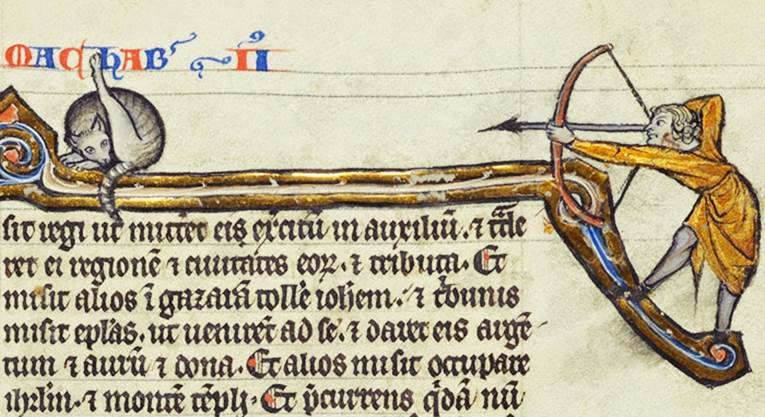 MACHAB' II
sit regi ut mittet eis exercitū in auxiliū. ⁊ tᵃde
ret ei regionē ⁊ ciuitates eoꝝ. ⁊ tributa. Et
misit alios ī gazarā tollē iohem. ⁊ tⁱbunis
misit eplas. ut uenirēt ad se. ⁊ daret eis argē
tum ⁊ aurū ⁊ dona. Et alios misit occupare
ihrlm. ⁊ montē tēpli. Et p̄currens qⁱdā nū